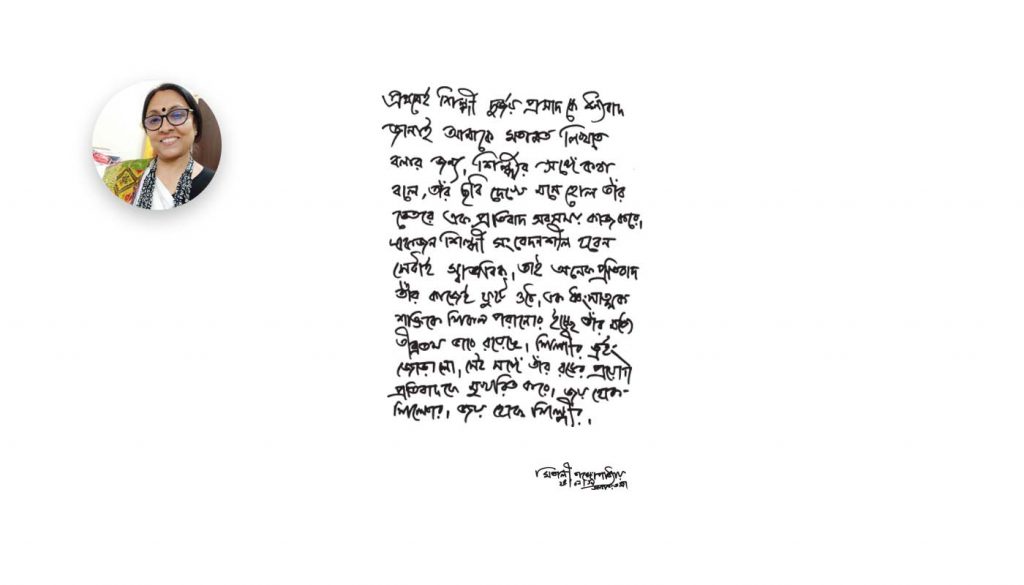 প্রথমেই শিল্পী দুর্জয় প্রসাদ কে ধন্যবাদ
জানাই আমাকে মতামত লিখতে
বলার জন্য, শিল্পীর সঙ্গে কথা
বলে, তাঁর ছবি দেখে মনে হোল তাঁর
ভেতরে এক প্রতিবাদ সবসময় কাজ করে,
একজন শিল্পী সংবেদনশীল হবেন
সেটাই স্বাভাবিক, তাই অনেক প্রতিবাদ
তাঁর কাজেই ফুটে ওঠে, এক ধ্বংসাত্মক
শক্তিকে শিকল পরানোর ইচ্ছে তাঁর মধ্যে
তীব্রতম ভাবে রয়েছে। শিল্পীর ড্রইং
জোরালো, সেই সঙ্গে তাঁর রঙের প্রয়োগ
প্রতিবাদকে মুখরিত করে। জয় হোক
শিল্পের। জয় হোক শিল্পীর।